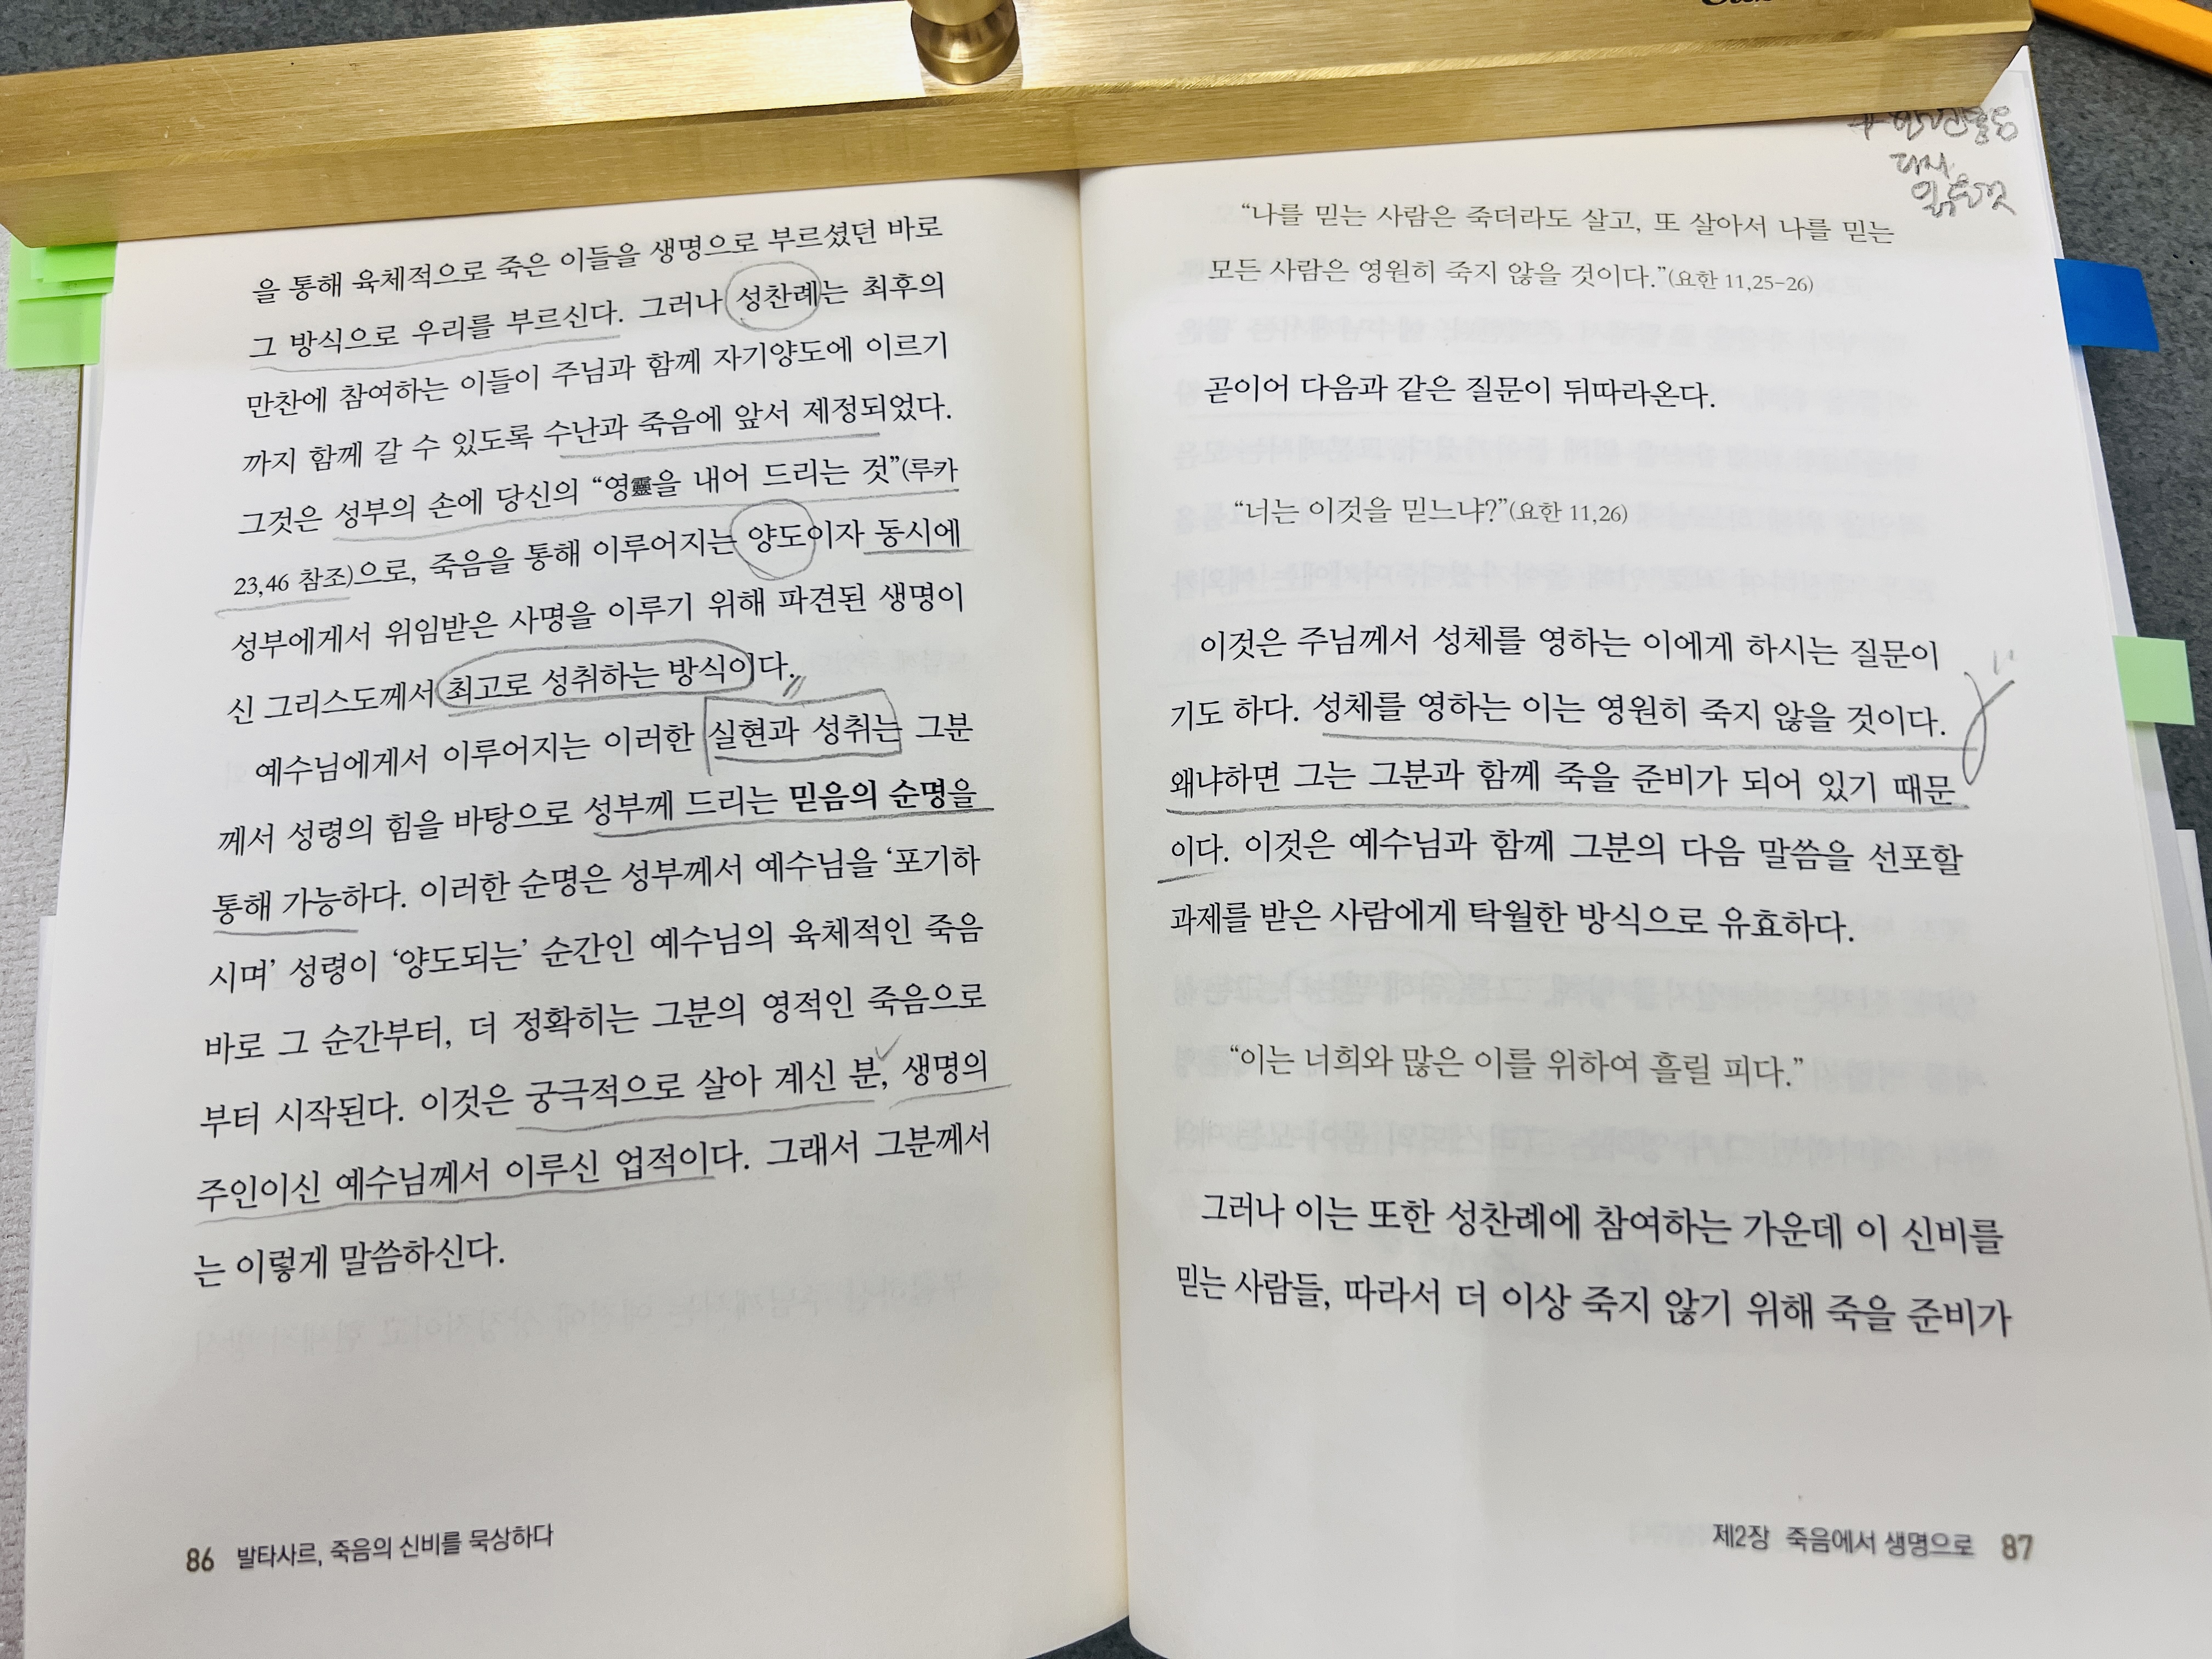 을 통해 육체적으로 죽은 이들을 생명으로 부르셨던 바로
그 방식으로 우리를 부르신다. 그러나 성찬례는 최후의
만찬에 참여하는 이들이 주님과 함께 자기양도에 이르기
까지 함께 갈 수 있도록 수난과 죽음에 앞서 제정되었다.
그것은 성부의 손에 당신의 “영靈을 내어 드리는 것”(루카
23,46 참조)으로, 죽음을 통해 이루어지는 양도이자 동시에
성부에게서 위임받은 사명을 이루기 위해 파견된 생명이
신 그리스도께서 최고로 성취하는 방식이다.
예수님에게서 이루어지는 이러한 실현과 성취는 그분
께서 성령의 힘을 바탕으로 성부께 드리는 믿음의 순명을
통해 가능하다. 이러한 순명은 성부께서 예수님을 ‘포기하
시며’ 성령이 ‘양도되는’ 순간인 예수님의 육체적인 죽음
바로 그 순간부터, 더 정확히는 그분의 영적인 죽음으로
부터 시작된다. 이것은 궁극적으로 살아 계신 분, 생명의
주인이신 예수님께서 이루신 업적이다. 그래서 그분께서
는 이렇게 말씀하신다.
86 발타사르, 죽음의 신비를 묵상하다
다시
읽을것
“나를 믿는 사람은 죽더라도 살고, 또 살아서 나를 믿는
모든 사람은 영원히 죽지 않을 것이다.”(요한 11,25-26)
곧이어 다음과 같은 질문이 뒤따라온다.
“너는 이것을 믿느냐?”(요한 11,26)
이것은 주님께서 성체를 영하는 이에게 하시는 질문이
기도 하다. 성체를 영하는 이는 영원히 죽지 않을 것이다.
왜냐하면 그는 그분과 함께 죽을 준비가 되어 있기 때문
이다. 이것은 예수님과 함께 그분의 다음 말씀을 선포할
과제를 받은 사람에게 탁월한 방식으로 유효하다.
“이는 너희와 많은 이를 위하여 흘릴 피다.”
그러나 이는 또한 성찬례에 참여하는 가운데 이 신비를
믿는 사람들, 따라서 더 이상 죽지 않기 위해 죽을 준비가
제2장 죽음에서 생명으로 87